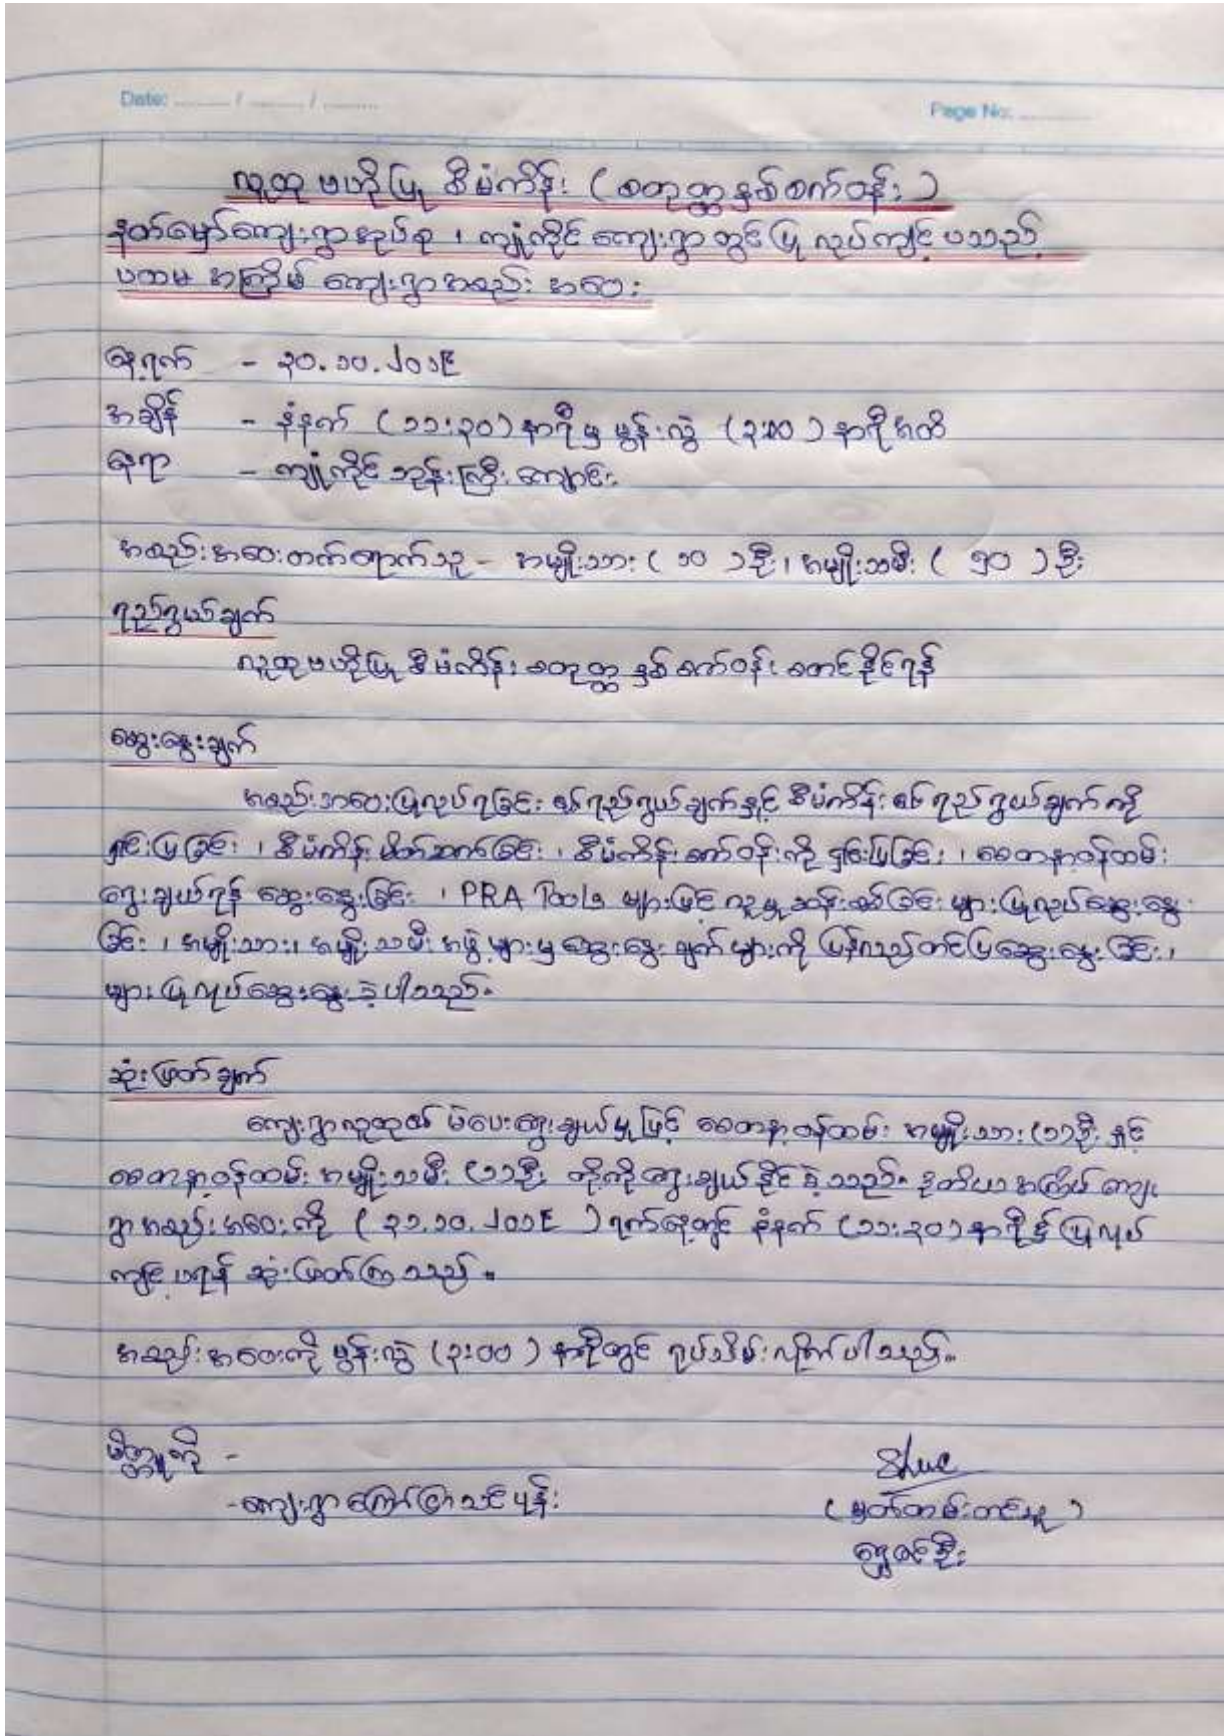 Date: ......... / ......... / .........
Page No: ............
လူထုဗဟိုပြု စီမံကိန်း (စတုတ္ထနှစ်စက်ဝန်း)
နတ်မှော်ကျေးရွာအုပ်စု ၊ ကျုံကိုင် ကျေးရွာတွင် ပြုလုပ်ကျင့်ပသည့်
ပထမ အကြိမ် ကျေးရွာအစည်း အဝေး
နေ့ရက် - ၃၀.၁၀.၂၀၁၉
အချိန် - နံနက် (၁၁:၃၀) နာရီမှ မွန်းလွဲ (၃:၀၀) နာရီအထိ
နေရာ - ကျုံကိုင် ဘုန်းကြီး ကျောင်း
အစည်းအဝေးတက်ရောက်သူ - အမျိုးသား ( ၁၀ )ဦး၊ အမျိုးသမီး ( ၅၀ )ဦး
ရည်ရွယ်ချက်
လူထုဗဟိုပြု စီမံကိန်း စတုတ္ထ နှစ်စက်ဝန်း စတင်နိုင်ရန်
ဆွေးနွေးချက်
အစည်းအဝေးပြုလုပ်ရခြင်း ၏ရည်ရွယ်ချက်နှင့် စီမံကိန်း၏ ရည်ရွယ်ချက်ကို
ရှင်းပြခြင်း ၊ စီမံကိန်း မိတ်ဆက်ခြင်း ၊ စီမံကိန်းစက်ဝန်းကို ရှင်းပြခြင်း ၊ စေတနာ့ဝန်ထမ်း
ရွေးချယ်ရန် ဆွေးနွေးခြင်း ၊ PRA Tools များဖြင့် လူမှုဆန်းစစ်ခြင်း များပြုလုပ်ဆွေးနွေး
ခြင်း ၊ အမျိုးသား၊ အမျိုးသမီး အဖွဲ့များမှ ဆွေးနွေး ချက်များကို ပြန်လည်တင်ပြဆွေးနွေးခြင်း ၊
များပြုလုပ်ဆွေးနွေးခဲ့ပါသည်။
ဆုံးဖြတ်ချက်
ကျေးရွာလူထု၏ မဲပေးရွေးချယ်မှုဖြင့် စေတနာ့ဝန်ထမ်း အမျိုးသား (၁)ဦး နှင့်
စေတနာ့ဝန်ထမ်း အမျိုးသမီး (၁)ဦး တို့ကိုရွေးချယ်နိုင်ခဲ့သည်။ ဒုတိယအကြိမ် ကျေး
ရွာအစည်းအဝေးကို ( ၃၁.၁၀.၂၀၁၉ )ရက်နေ့တွင် နံနက် (၁၁:၃၀)နာရီ၌ ပြုလုပ်
ကျင့်ပရန် ဆုံးဖြတ်ကြသည် ။
အစည်းအဝေးကို မွန်းလွဲ (၃:၀၀ ) နာရီတွင် ရုပ်သိမ်းလိုက်ပါသည်။
မိတ္တူကို -
-ကျေးရွာကြော်ငြာသင်ပုန်း
( မှတ်တမ်းတင်သူ )